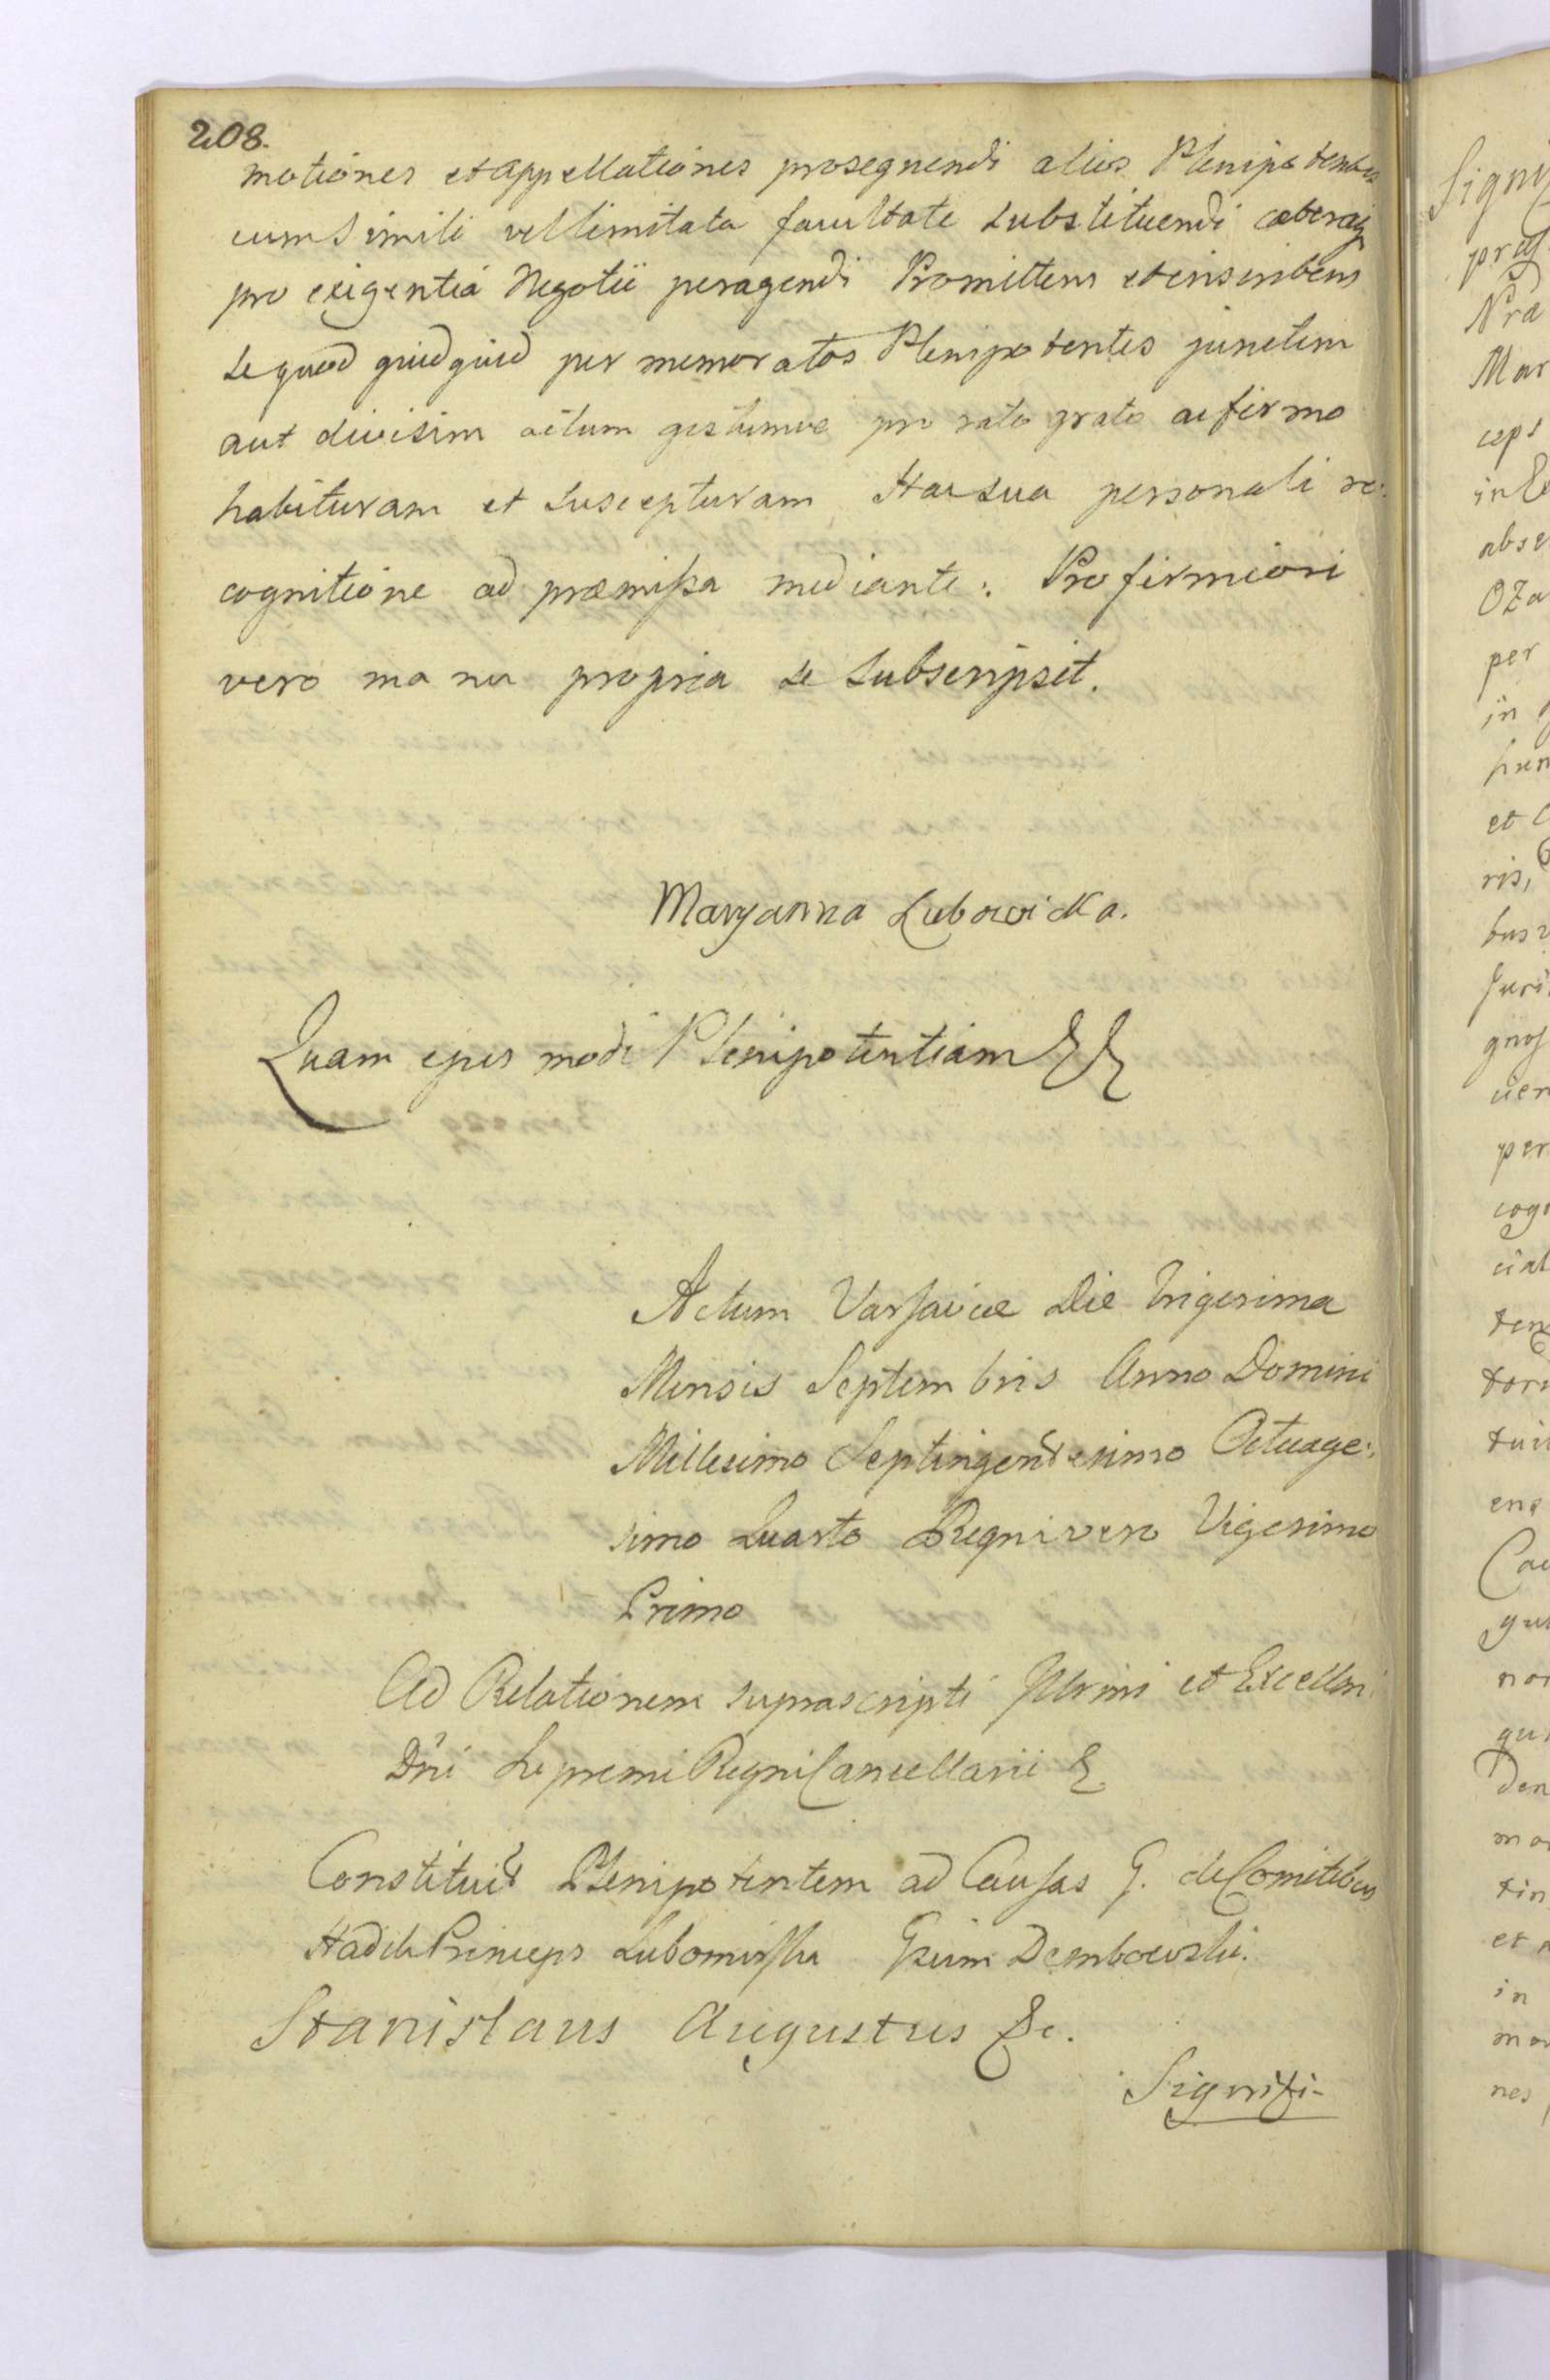 208.
motiones et appellationes prosequendi alios Plenipotentes
cum simili vel limitata facultate substituendi caeteraq
pro exigentia Negotii peragendi Promittens et inscribens
se quod quidquid per memoratos Plenipotentes junctim
aut divisim actum gestumve pro rato grato ac firmo
habituram et suscepturam Hac sua personali re:
cognitione ad præmissa mediante: Pro firmiori
vero manu propria se subscripsit.
Maryanna Lubowicka.
Quam ejus modi Plenipotentiam &&
Actum Varsaviæ Die Trigesima
Mensis Septembris Anno Domini
Millesimo Septingentesimo Octuage:
simo Quarto Regni vero Vigesimo
Primo
Ad Relationem suprascripti Illrmi et Excellmi
Dni Supremi Regni Cancellarii &
Constituit Plenipotentem ad Causas G. de Comitibus
Hadik Princeps Lubomirska Gsum Dembowski.
Stanislaus Augustus &c.
Signifi-
Signif
Nra
Mar
ceps
abse
OZa
per
in
et
ris,
uer
per
cogn
cial
ene
Cau
nor
Den
mo
et
in
nes